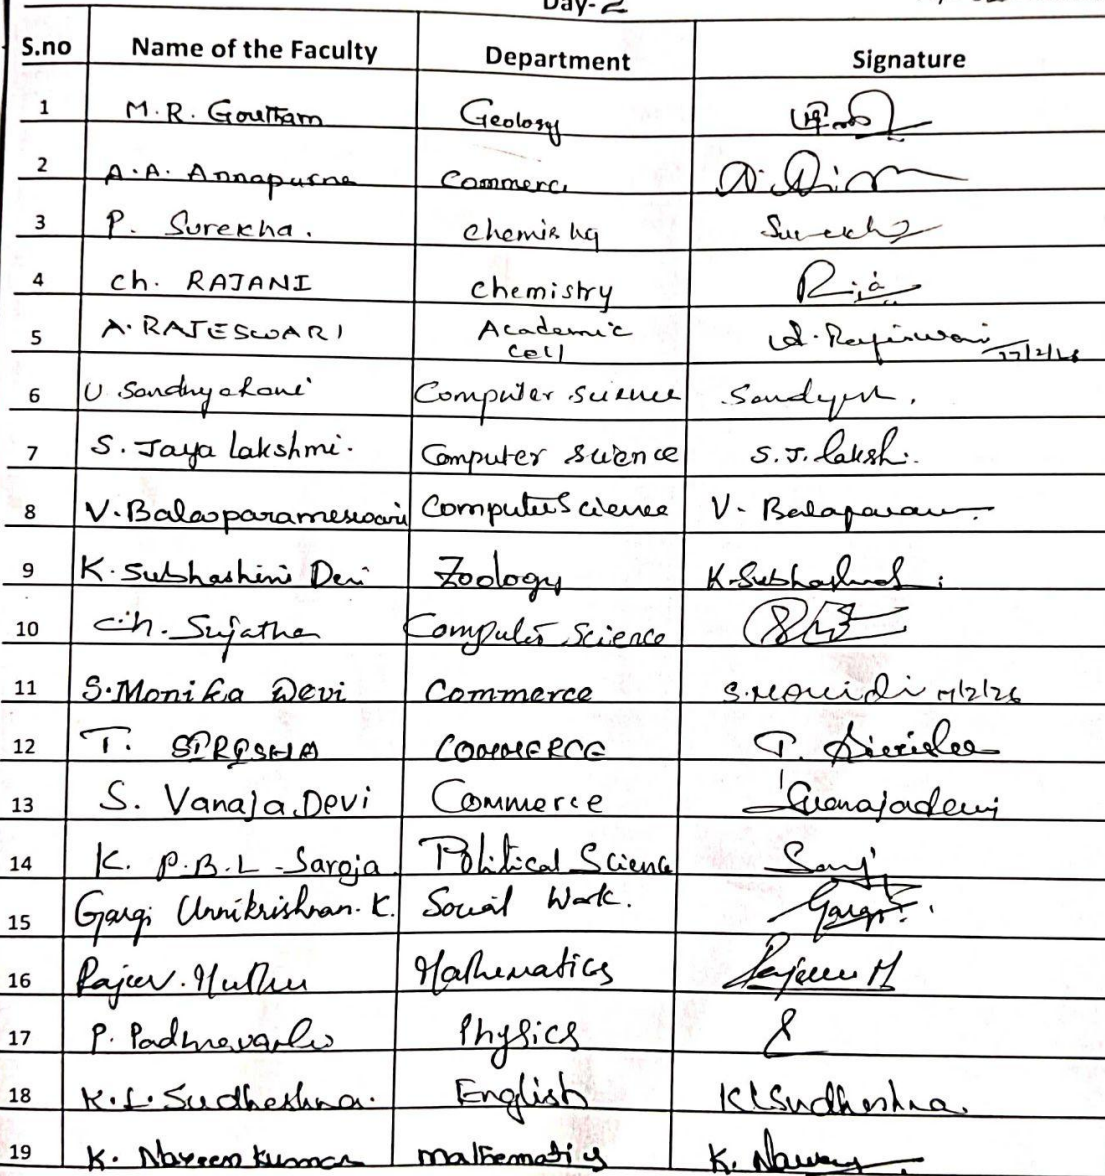 Day-2
S.no Name of the Faculty Department Signature
1 M.R. Goutham Geology
2 A.A. Annapurna Commerce
3 P. Surekha. chemistry Surekha
4 ch. RAJANI chemistry
5 A. RAJESWARI Academic cell A. Rajeswari 17/2/26
6 U. Sandhya Rani Computer science
7 S. Jaya lakshmi. Computer science S. J. laksh.
8 V. Balaparameswari Computer Science V. Balaparam
9 K. Subhashini Devi Zoology K. Subhashini
10 Ch. Sujatha Computer Science
11 S. Monika Devi Commerce 17/2/26
12 T. SIRISHA COMMERCE T.
13 S. Vanaja Devi Commerce Svanajadevi
14 K. P.B.L. Saroja Political Science
15 Gargi Unnikrishnan. K. Social Work. Gargi
16 Rajeev. Muthu Mathematics Rajeev M
17 P. Padmavathi Physics
18 K. L. Sudheshna. English KLSudheshna.
19 K. Naveen Kumar mathematics K.